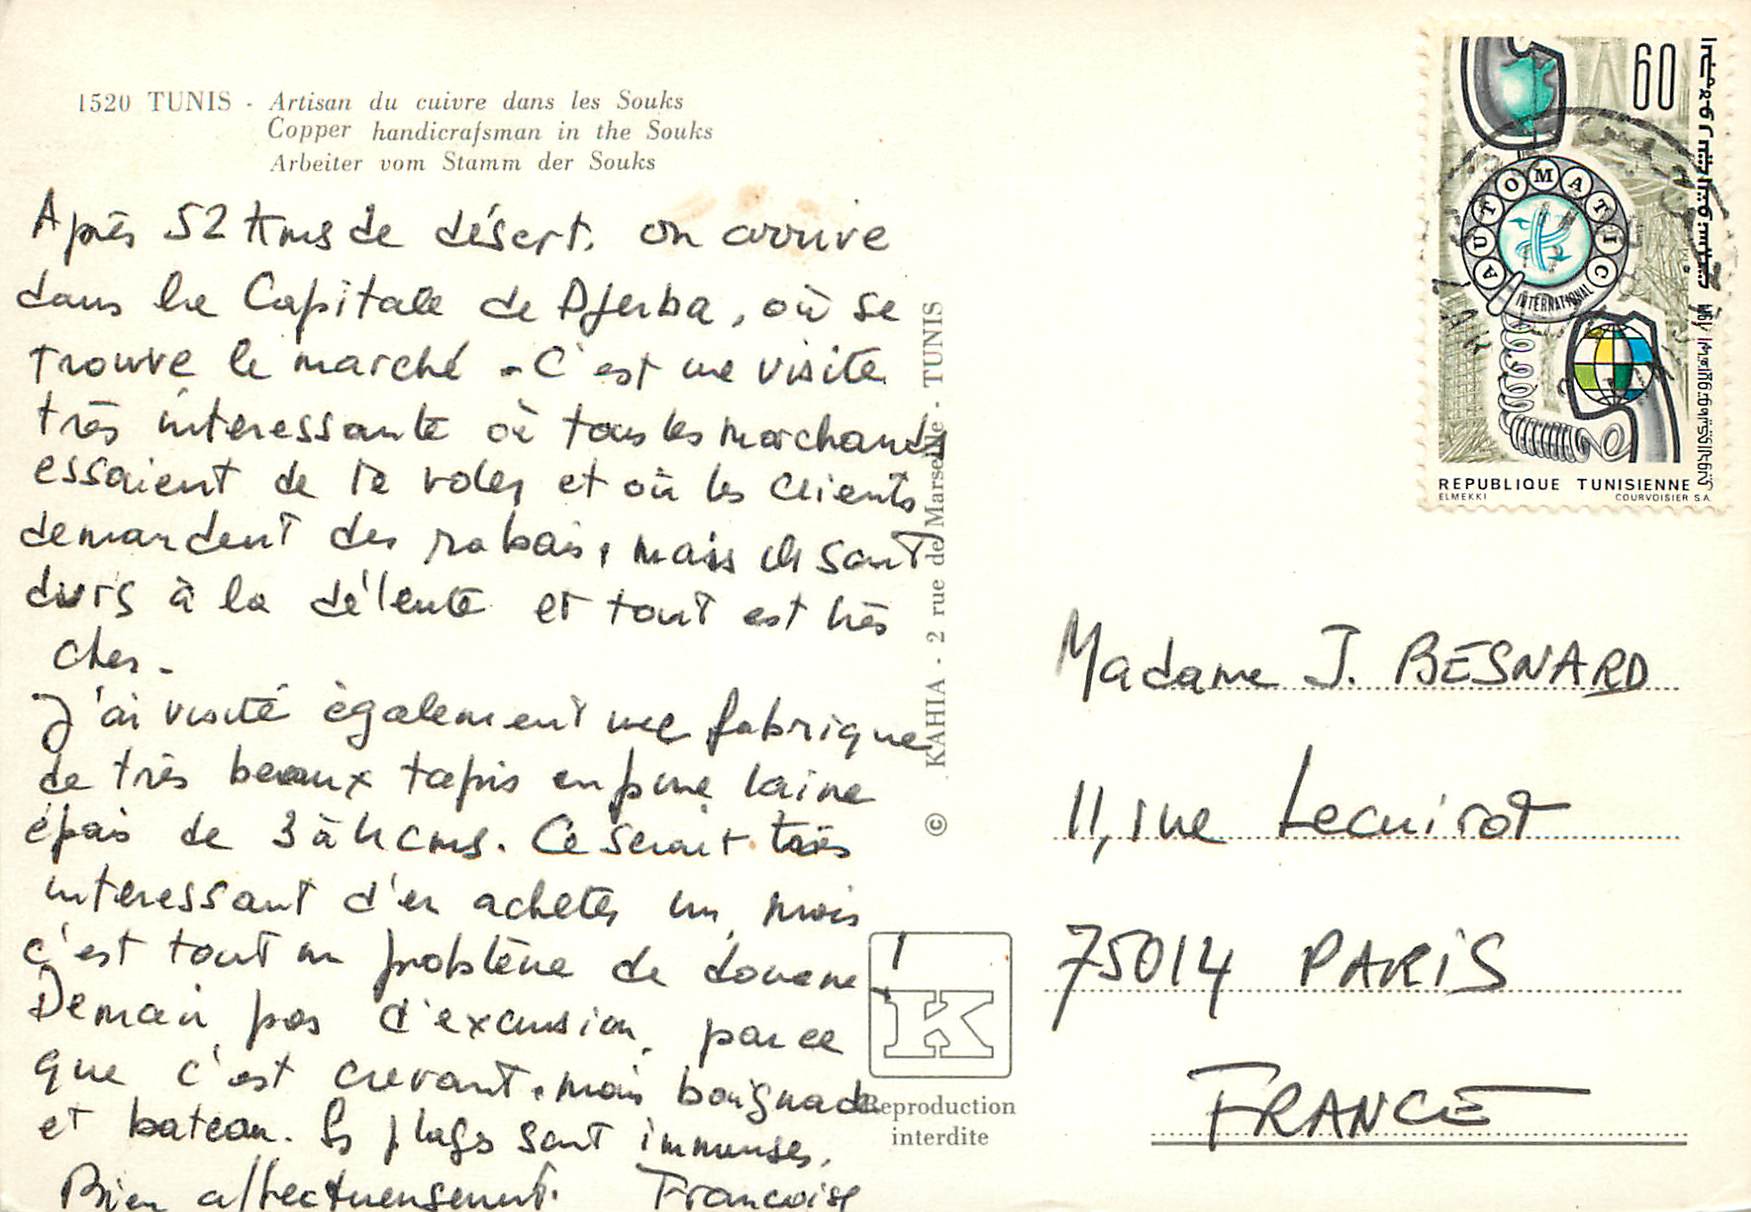 1520 TUNIS - Artisan du cuivre dans les Souks
Copper handicrafsman in the Souks
Arbeiter vom Stamm der Souks
Après 52 kms de désert, on arrive
dans la Capitale de Djerba, où se
trouve le marché - C'est une visite
très intéressante où tous les marchands
essaient de te voler et où les clients
demandent des rabais, mais ils sont
durs à la détente et tout est très
cher -
J'ai visité également une fabrique
de très beaux tapis en pure laine
épais de 3 à 4 cms. Ce serait très
intéressant d'en acheter un, mais
c'est tout un problème de douane !
Demain pas d'excursion, parce
que c'est crevant, mais baignade
et bateau. Les plages sont immenses.
Bien affectueusement. Françoise
© KAHIA - 2 rue de Marseille - TUNIS
K
Reproduction
interdite
60
AUTOMATIC
INTERNATIONAL
REPUBLIQUE TUNISIENNE
ELMEKKI COURVOISIER S.A.
Madame J. BESNARD
11, rue Lecuirot
75014 PARIS
FRANCE